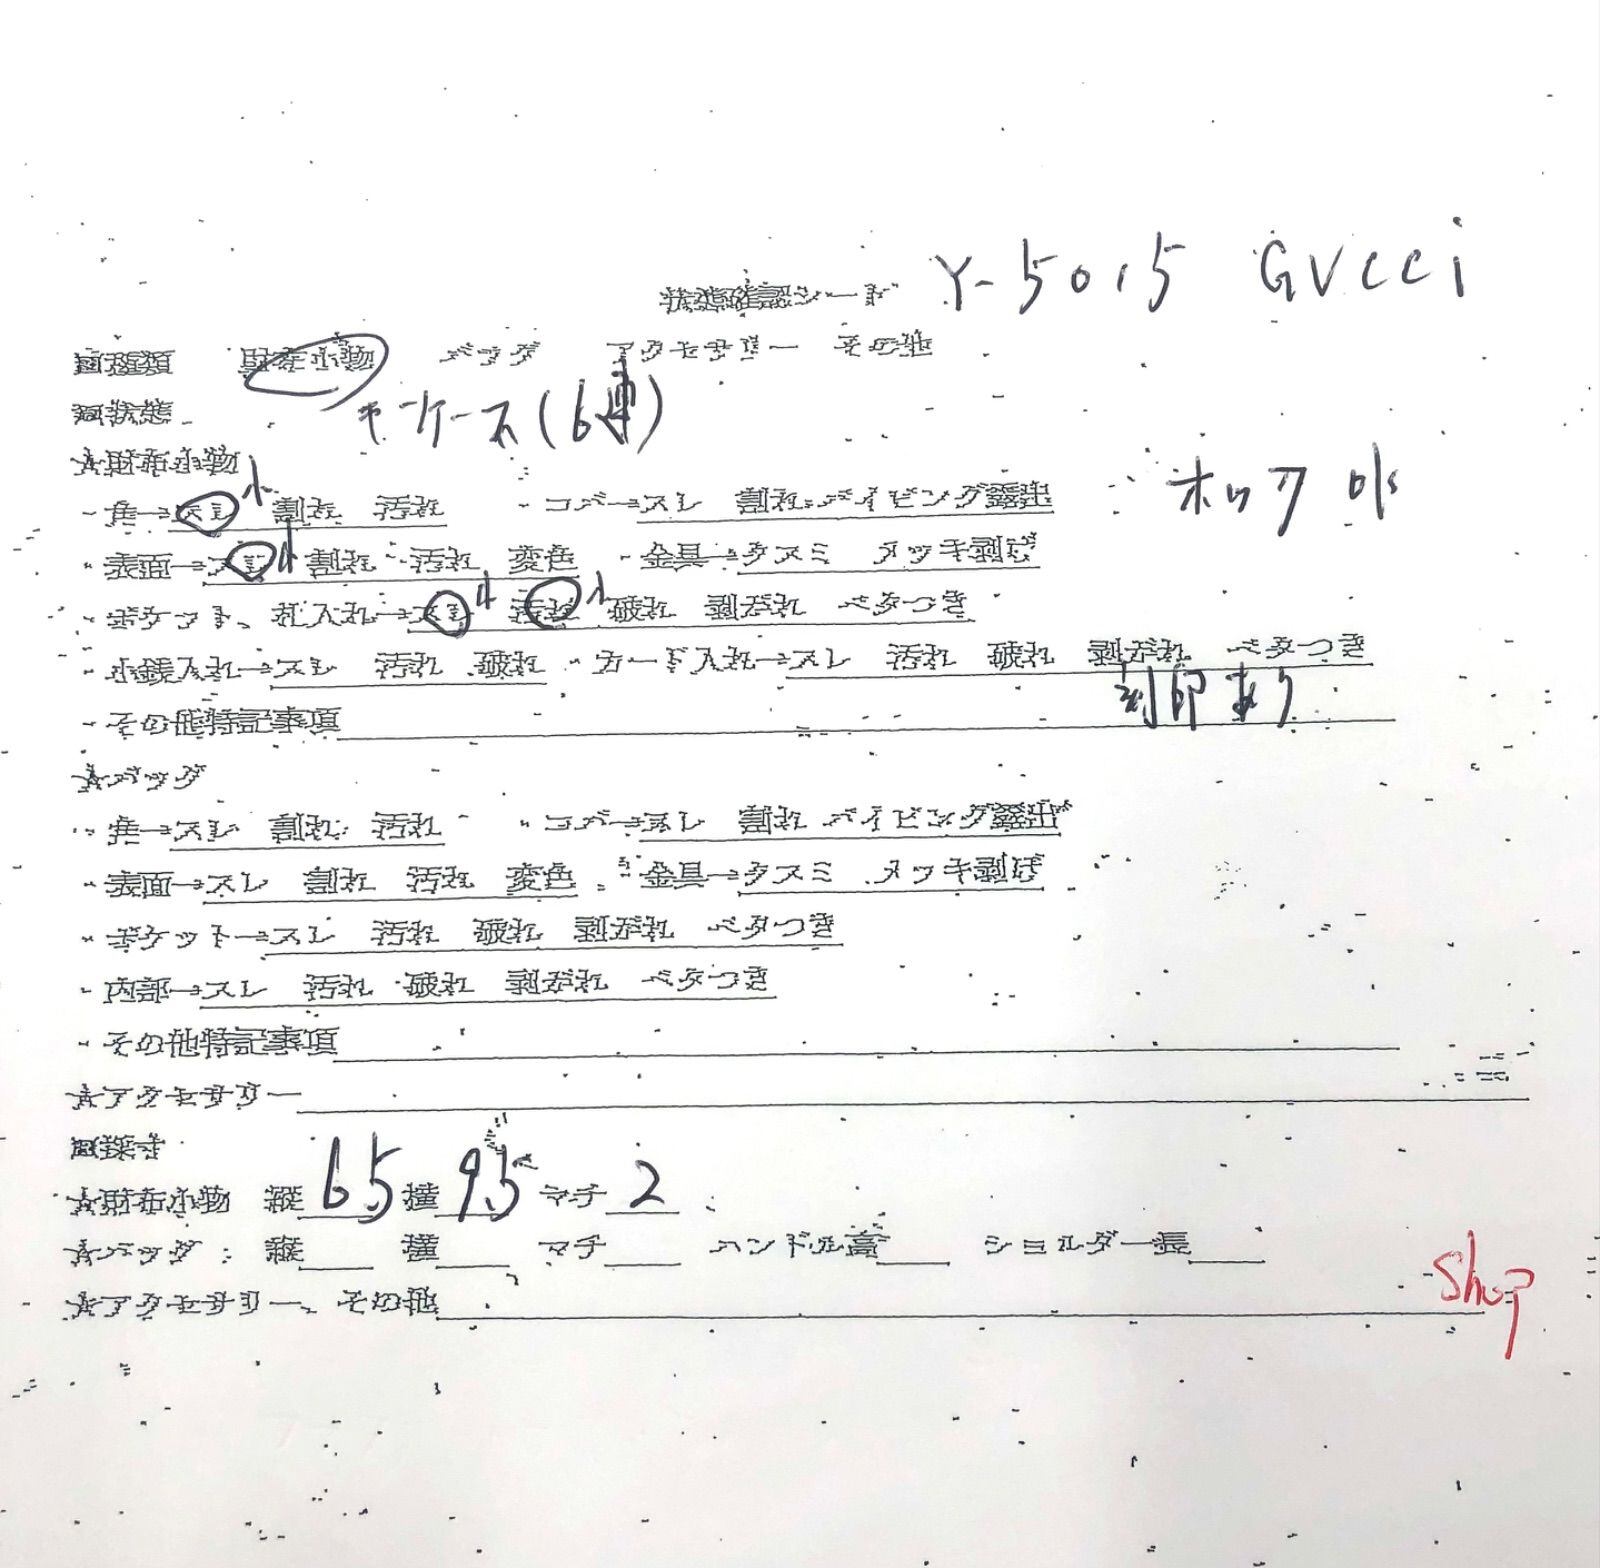 状態確認シート Y-5015 GUCCI
■種類 財布小物 バッグ アクセサリー その他
■状態 キーケース(6連)
☆財布小物
・角→スレ小 割れ 汚れ ・コバ→スレ 割れ パイピング露出 ホック ok
・表面→スレ小 割れ 汚れ 変色 ・金具→クスミ メッキ剥げ
・ポケット、札入れ→スレ小 汚れ小 破れ 剥がれ ベタつき
・小銭入れ→スレ 汚れ 破れ ・カード入れ→スレ 汚れ 破れ 剥がれ ベタつき
・その他特記事項 刻印あり
☆バッグ
・角→スレ 割れ 汚れ ・コバ→スレ 割れ パイピング露出
・表面→スレ 割れ 汚れ 変色 ・金具→クスミ メッキ剥げ
・ポケット→スレ 汚れ 破れ 剥がれ ベタつき
・内部→スレ 汚れ 破れ 剥がれ ベタつき
・その他特記事項
☆アクセサリー
■採寸
☆財布小物 縦 6.5 横 9.5 マチ 2
☆バッグ: 縦 横 マチ ハンドル高 ショルダー長
☆アクセサリー、その他
Shop